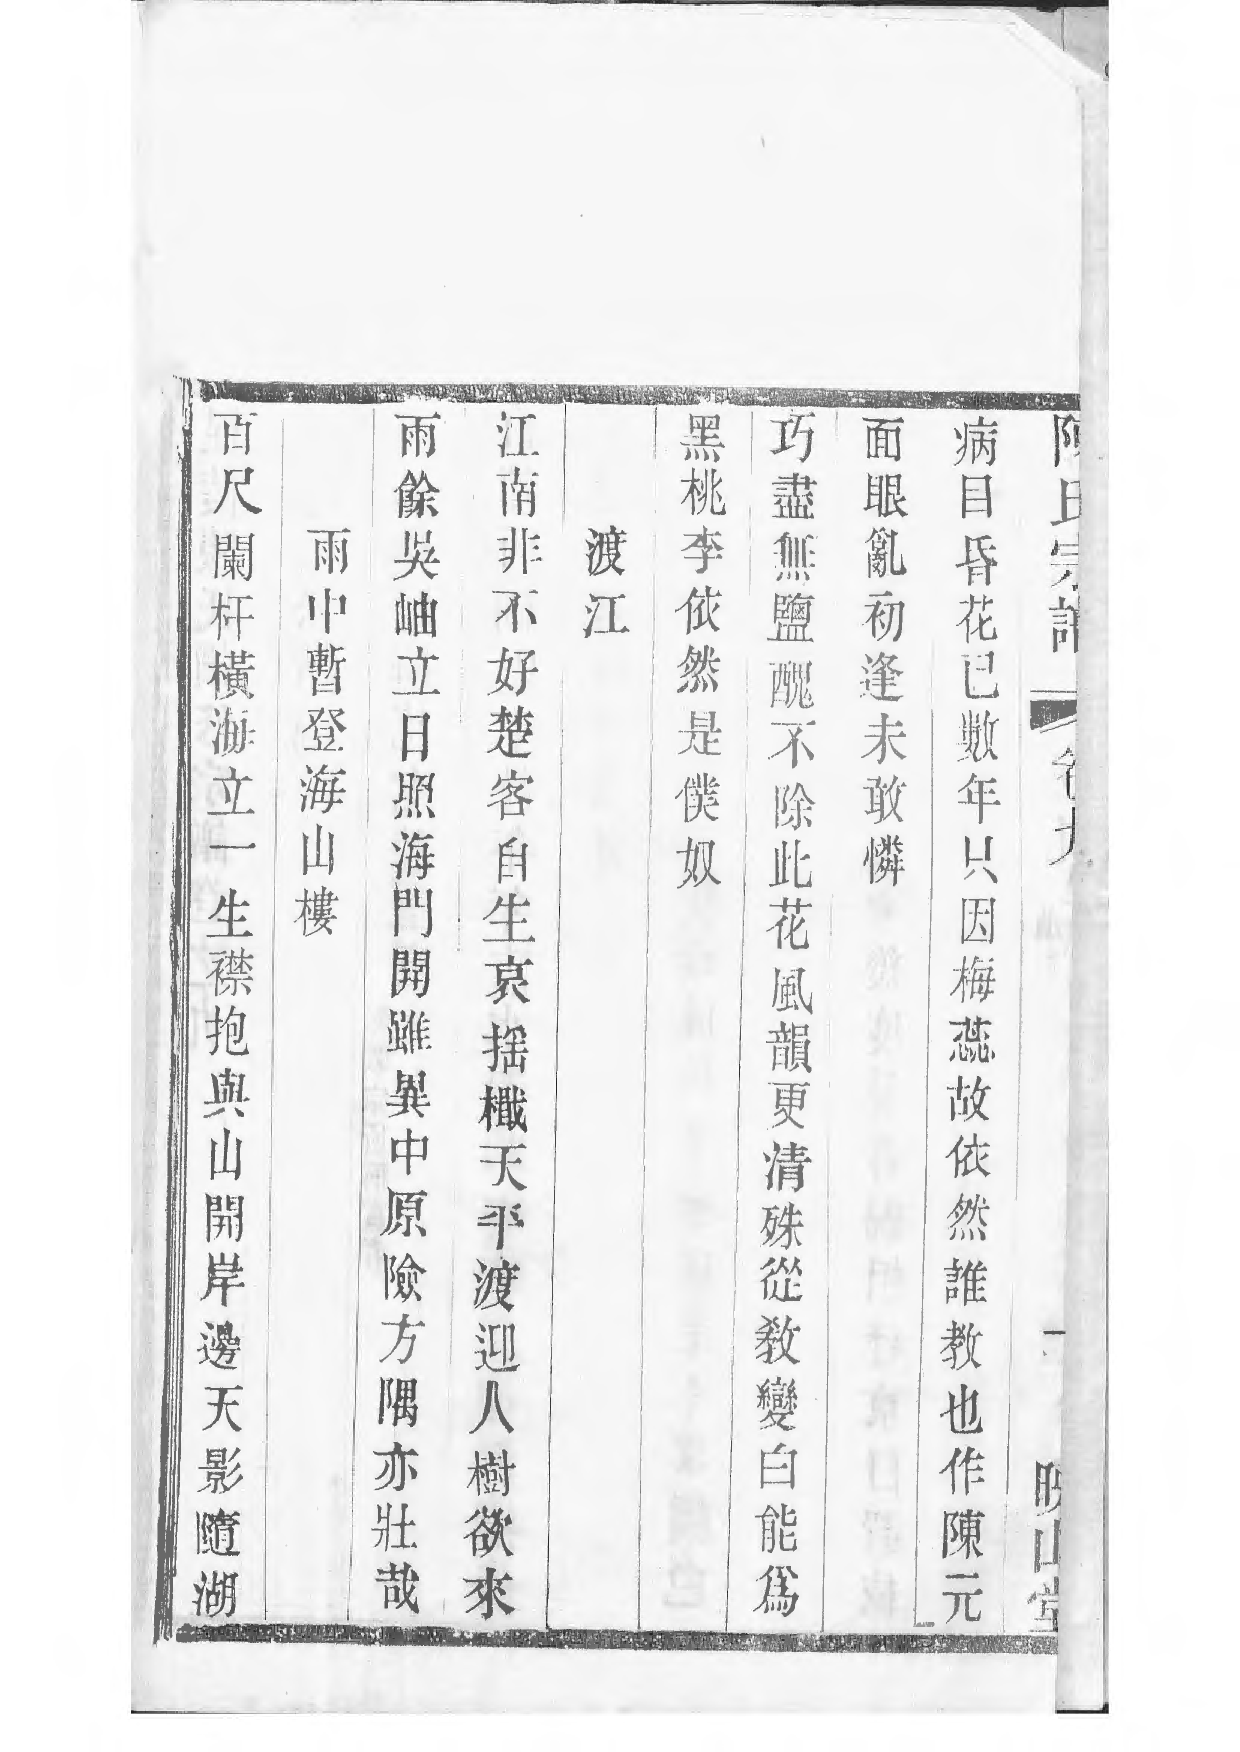 陳氏宗譜 卷九 映山堂
病目昏花已數年只因梅蕊故依然誰教也作陳元
面眼亂初逢未敢憐
巧盡無鹽醜不除此花風韻更清殊從教變白能爲
黑桃李依然是僕奴
渡江
江南非不好楚客自生哀揺檝天平渡迎人樹欲來
雨餘吳岫立日照海門開雖異中原險方隅亦壯哉
雨中暫登海山樓
百尺闌杆橫海立一生襟抱與山開岸邊天影隨湖